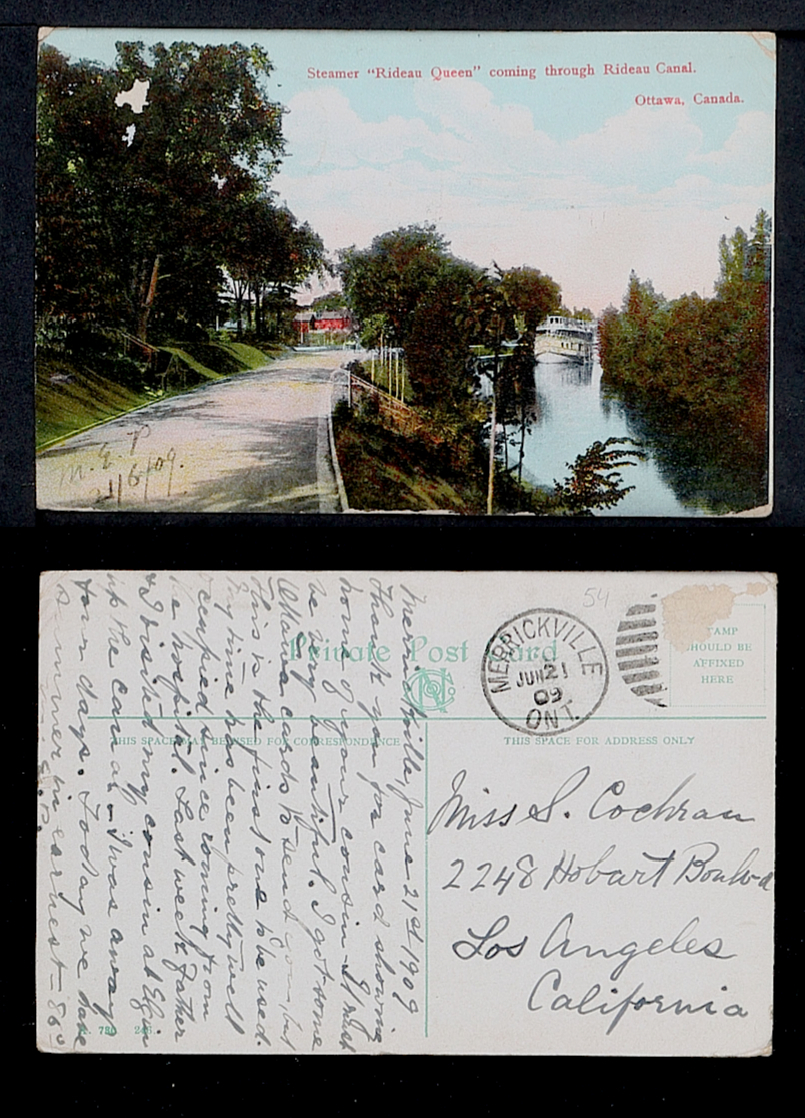 Steamer "Rideau Queen" coming through Rideau Canal.
Ottawa, Canada.
M. E. P
21/6/09.
Private Post Card
54
MERRICKVILLE
JUN 21
09
ONT.
STAMP
SHOULD BE
AFFIXED
HERE
THIS SPACE MAY BE USED FOR CORRESPONDENCE
THIS SPACE FOR ADDRESS ONLY
Merrickville, June 21st 1909
Thank you for card showing
home of your cousin. It must
be very beautiful. I got some
Ottawa cards to send you, but
this is the first one to be used.
My time has been pretty well
occupied since coming from
the hospital. Last week Father
& I visited my cousin at Elgin
up the canal - I was away
four days. Today we have
summer in earnest - 86°
E. P.
Miss S. Cochran
2248 Hobart Boulvd
Los Angeles
California